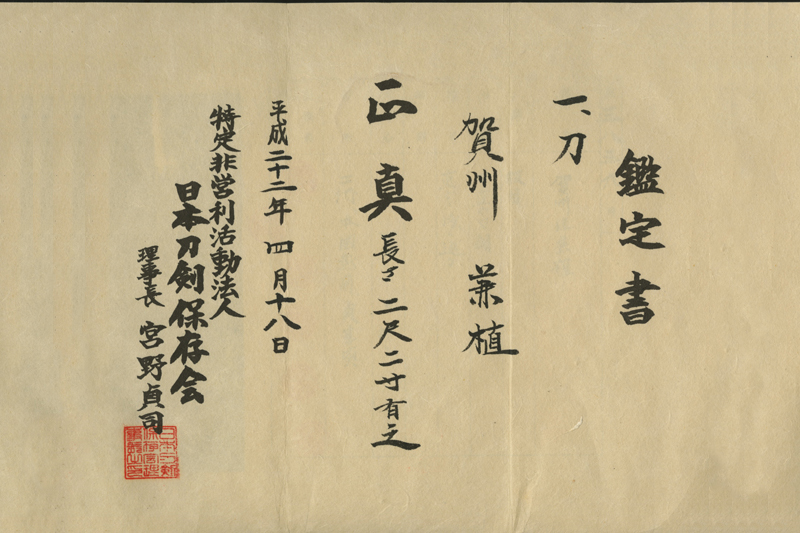 鑑定書
一、刀
賀州 兼植
正真 長さ二尺二寸有之
平成二十二年四月十八日
特定非営利活動法人
日本刀剣保存会
理事長 宮野貞司